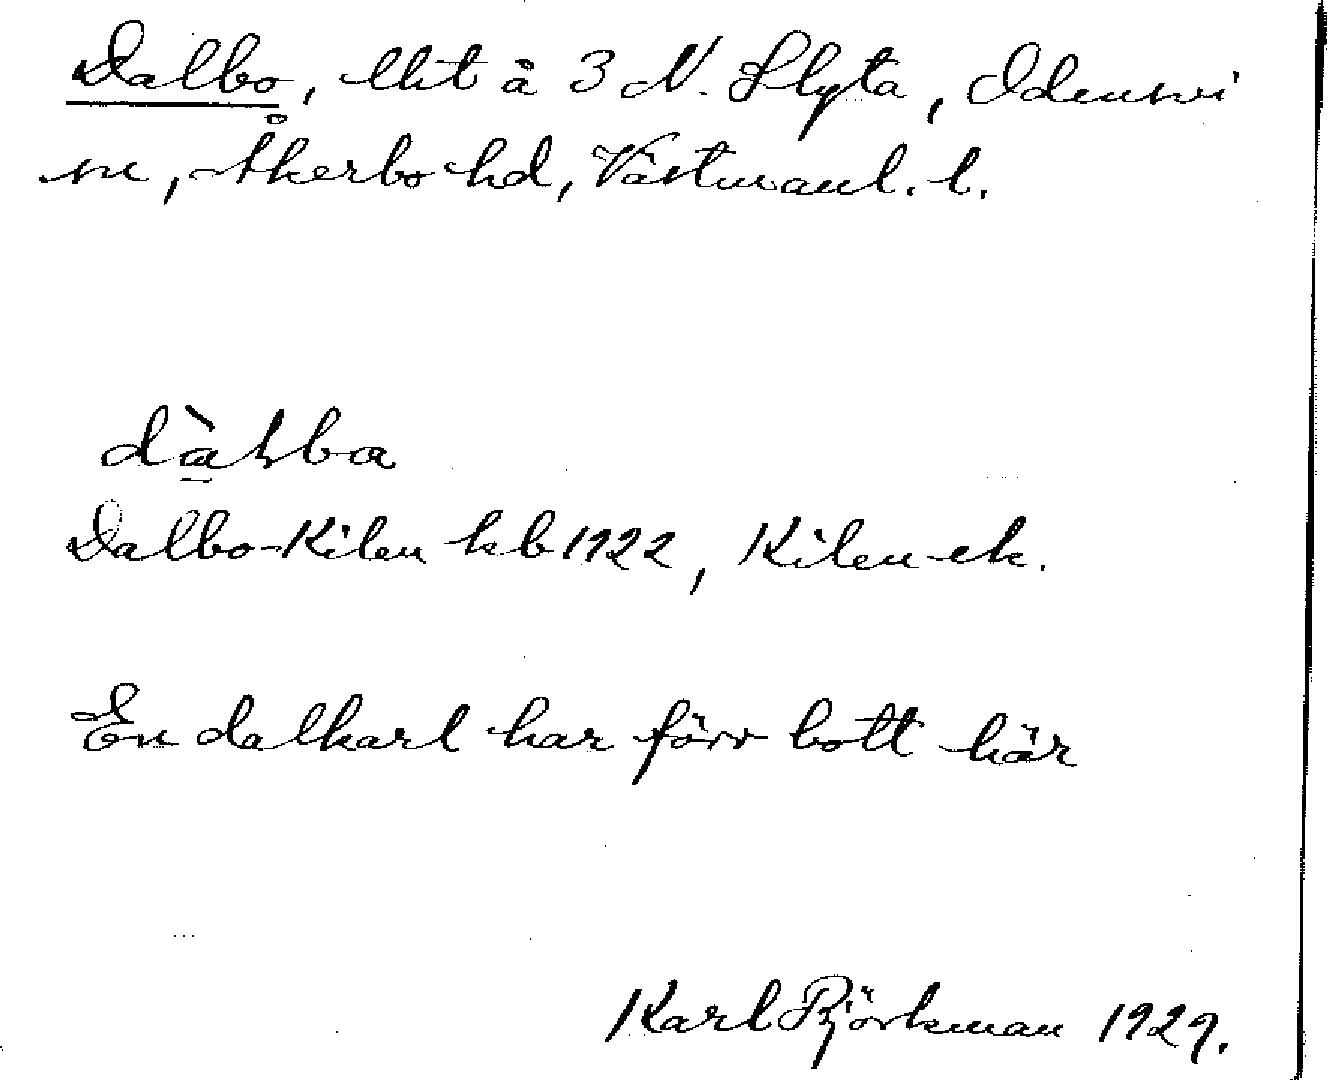 Dalbo, lht å 3 N. Skyta, Odensvi
sn, Åkerbo hd, Västmanl. l.
dàłba
Dalbo-Kilen kb 1922, Kilen ek.
En dalkarl har förr bott här
Karl Björkman 1929.